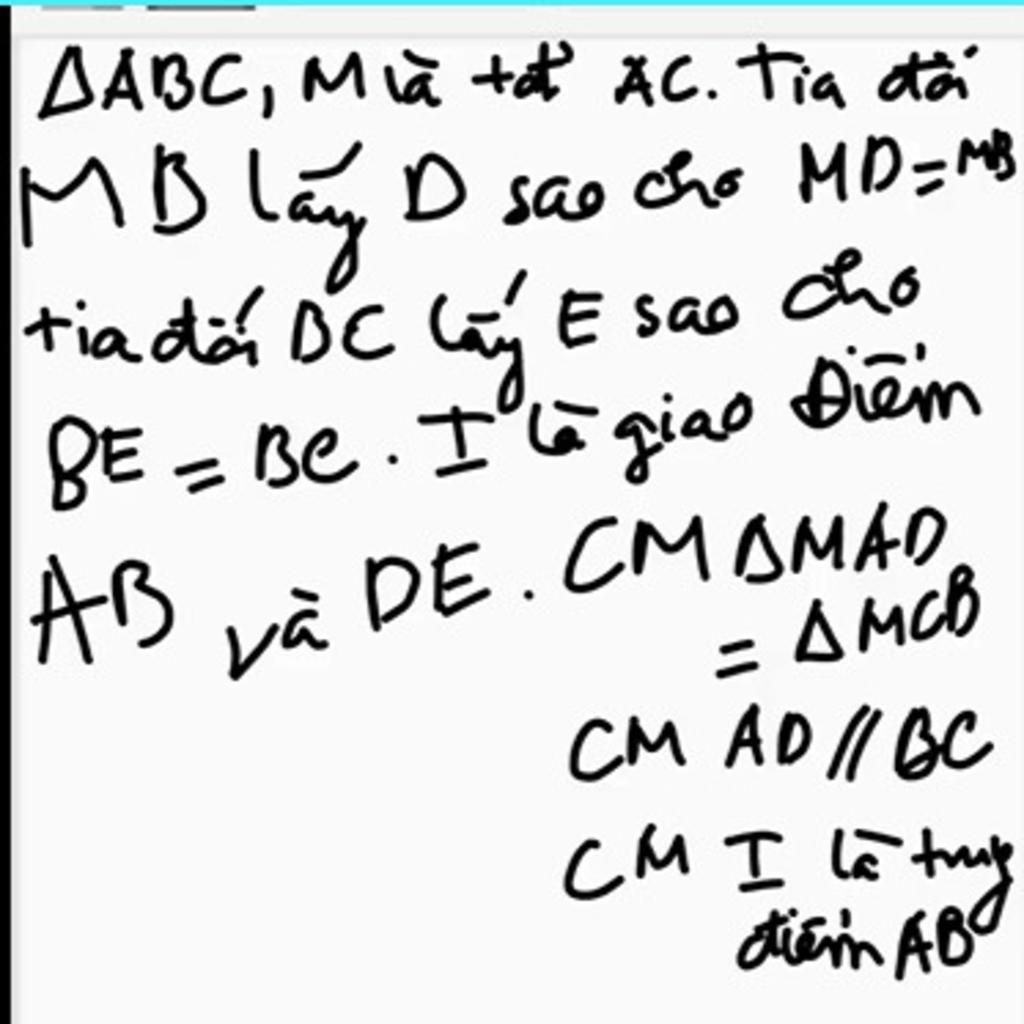 ΔABC, M là tđ AC. Tia đối
MB lấy D sao cho MD=MB
tia đối BC lấy E sao cho
BE = BC. I là giao Điểm
AB và DE. CM ΔMAD
= ΔMCB
CM AD // BC
CM I là trung
điểm AB